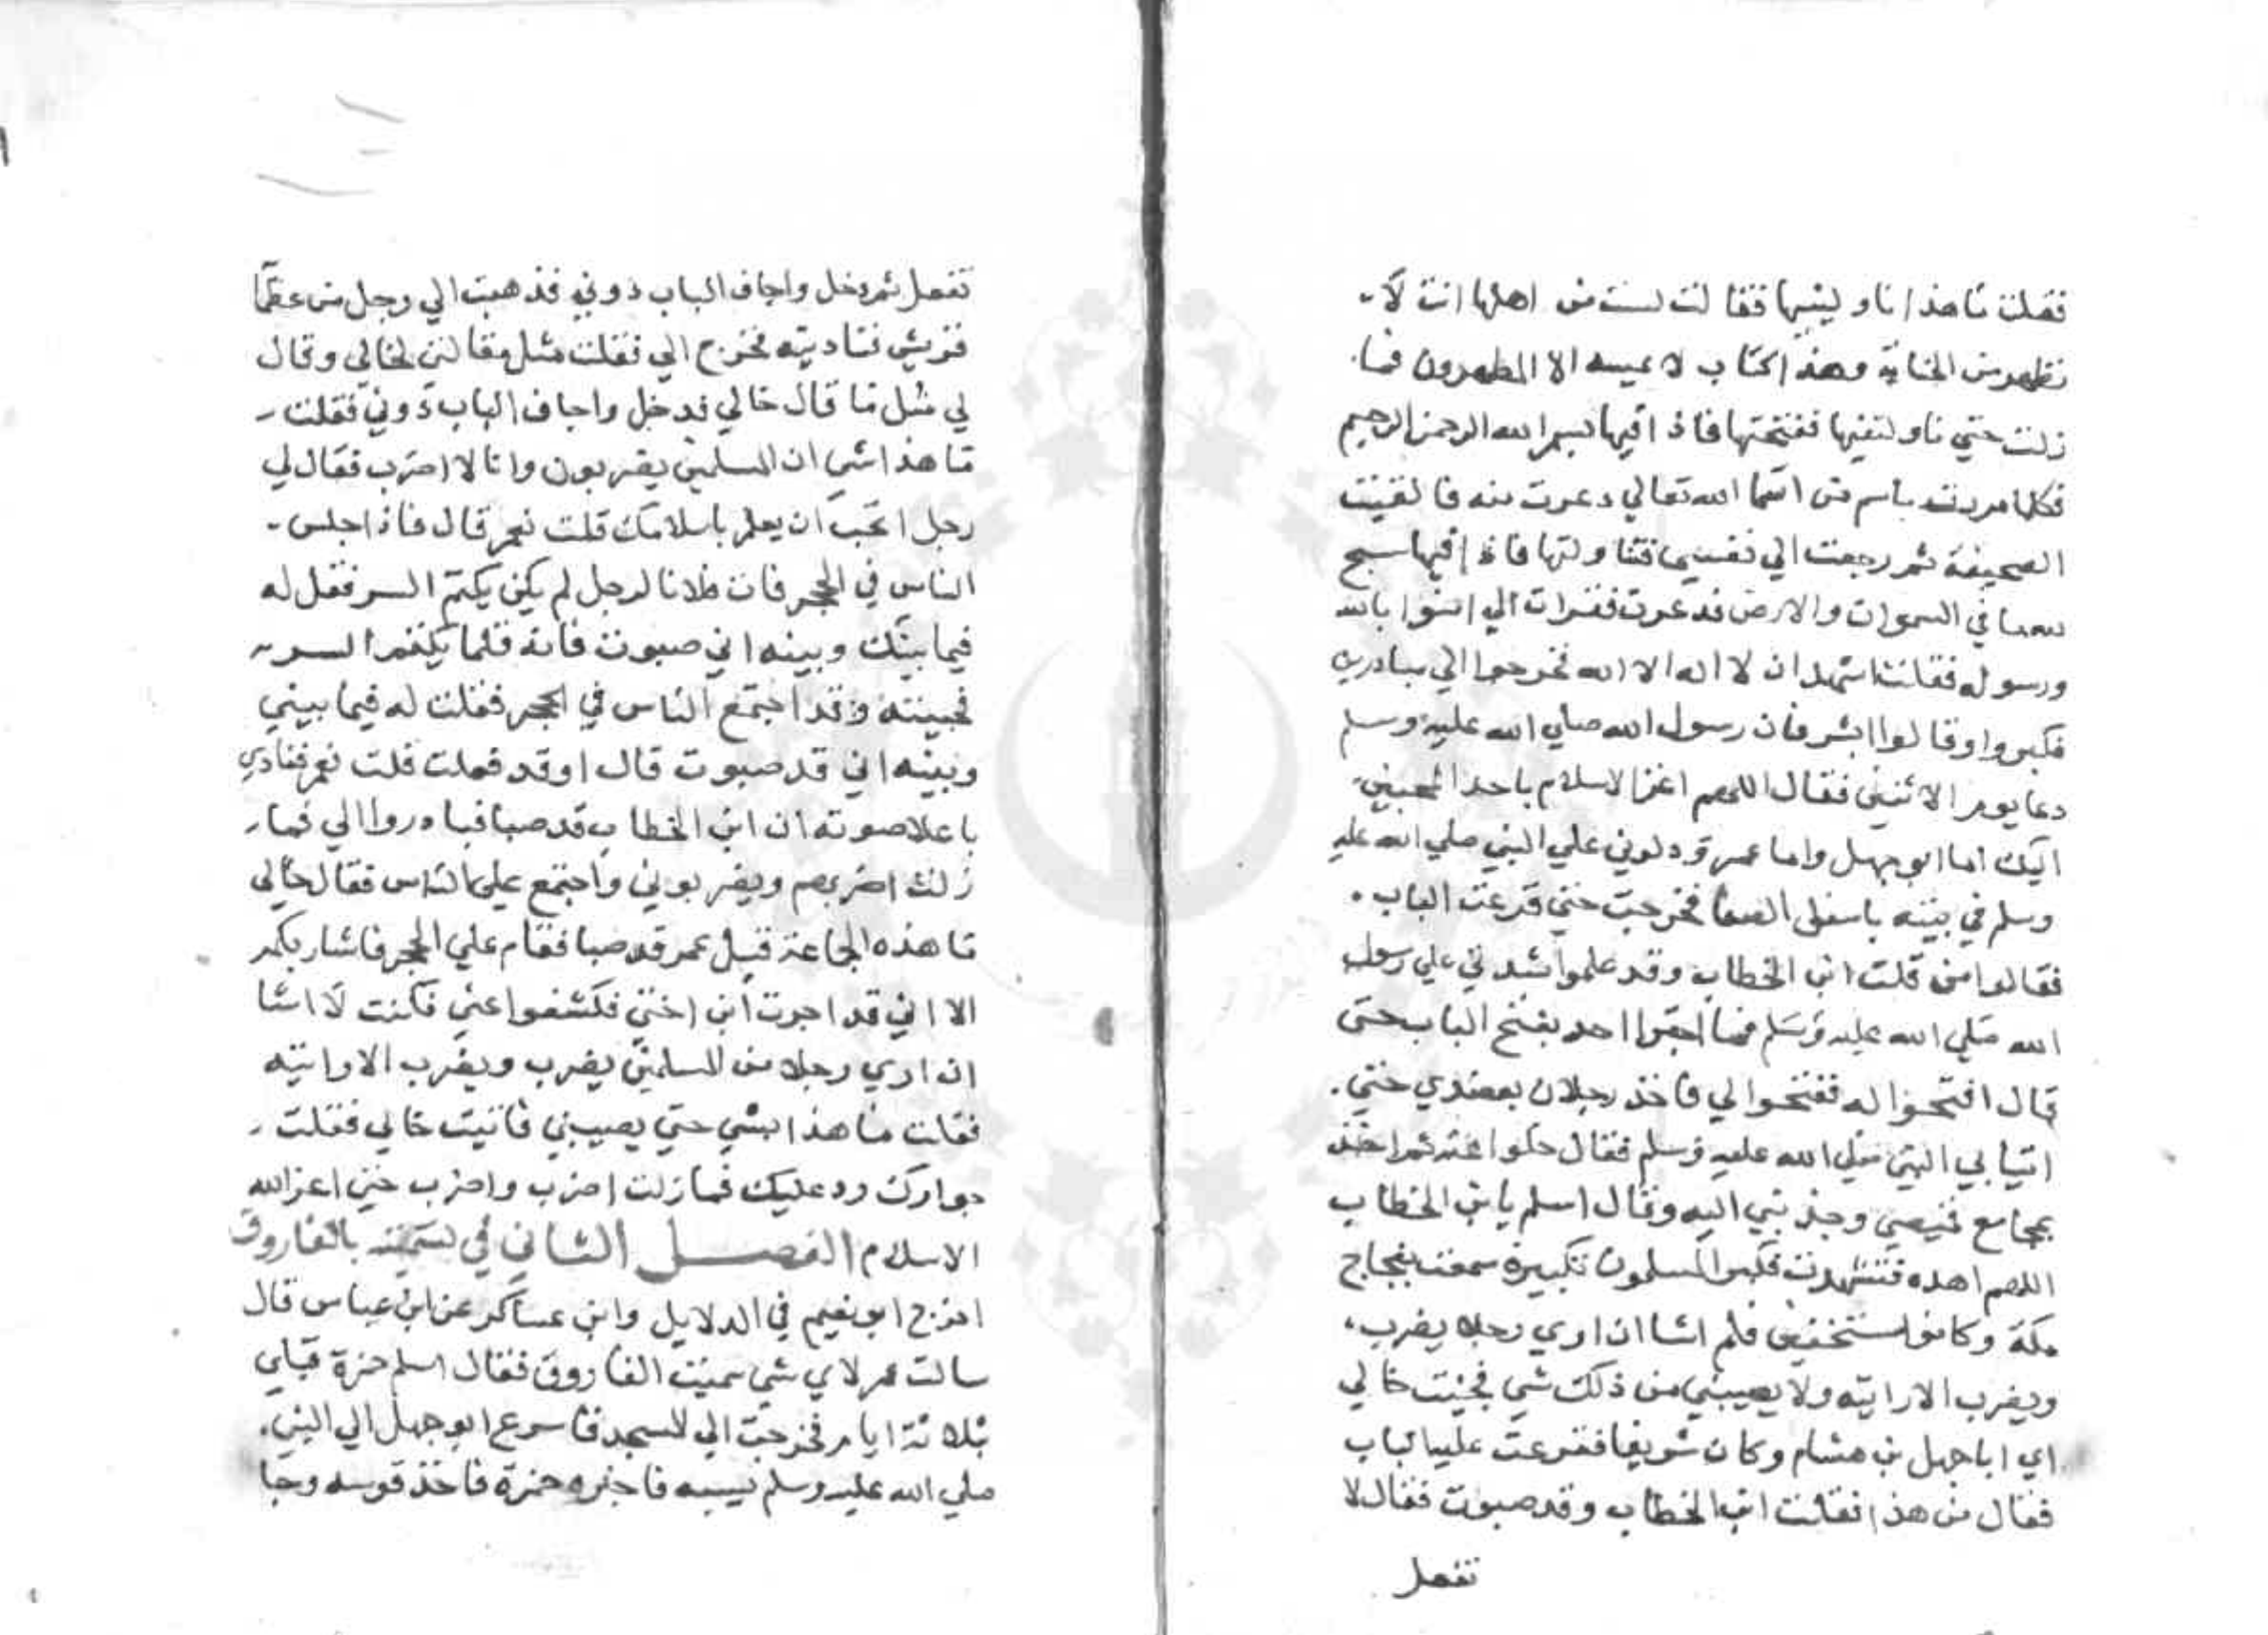 فقلت ما هذا ناولينيها فقالت لست من اهلها انت لا
تطهر من الجنابة وهذا كتاب لا يمسه الا المطهرون فما
زلت حتي ناولتنيها ففتحتها فاذا فيها بسم الله الرحمن الرحيم
فكلما مررت باسم من اسما الله تعالي دعرت منه فالقيت
الصحيفة ثم رجعت الي نفسي فتناولتها فاذا فيها سبح
لله ما في السموات والارض فدعرت فقرات الي امنوا بالله
ورسوله فقلت اشهد ان لا اله الا الله فخرجوا الي مبادرين
فكبروا وقالوا ابشر فان رسول الله صلي الله عليه وسلم
دعا يوم الاثنين فقال اللهم اعز الاسلام باحد المحبين
اليك اما ابو جهل واما عمر ودلوني علي النبي صلي الله عليه
وسلم في بيته باسفل الصفا فخرجت حتي قرعت الباب
فقالوا من قلت ابن الخطاب وقد علموا شدتي علي رسول
الله صلي الله عليه وسلم فما اجترا احد يفتح الباب حتي
قال افتحوا له ففتحوا لي فاخذ رجلان بعضدي حتي
اتيا بي النبي صلي الله عليه وسلم فقال خلوا عنه ثم اخذ
بمجامع قميصي وجذبني اليه وقال اسلم يا بن الخطاب
اللهم اهده فتشهدت فكبر المسلمون تكبيرة سمعت بفجاج
مكة وكانوا مستخفين فلم اشا ان اري رجلا يضرب
ويضرب الا رايته ولا يصيبني من ذلك شي فجيت خالي
اي ابا جهل بن هشام وكان شريفا فقرعت عليه الباب
فقال من هذا فقلت ابن الخطاب وقد صبوت فقال لا
تفعل
تفعل ثم دخل واجاف الباب دوني فذهبت الي رجل من عظما
قريش فناديته فخرج الي فقلت مثل مقالتي لخالي وقال
لي مثل ما قال خالي فدخل واجاف الباب دوني فقلت
ما هذا شي ان المسلمين يضربون وانا لا اضرب فقال لي
رجل اتحب ان يعلم باسلامك قلت نعم قال فاذا جلس
الناس في الحجر فات فلانا لرجل لم يكن يكتم السر فقل له
فيما بينك وبينه اني صبوت فانه قلما يكتم السر
فجيته وقد اجتمع الناس في الحجر فقلت له فيما بيني
وبينه اني قد صبوت قال اوقد فعلت قلت نعم فنادي
باعلا صوته ان ابن الخطاب قد صبا فبادروا الي فما
زلت اضربهم ويضربوني واجتمع علي الناس فقال خالي
ما هذه الجماعة قيل عمر قد صبا فقام علي الحجر فاشار بكمه
الا اني قد اجرت ابن اختي فكشفوا عني فكنت لا اشا
ان اري رجلا من المسلمين يضرب ويضرب الا رايته
فقلت ما هذا بشي حتي يصيبني فاتيت خالي فقلت
جوارك رد عليك فما زلت اضرب واضرب حتي اعز الله
الاسلام الفصل الثاني في تسميته بالفاروق
اخرج ابو نعيم في الدلايل وابن عساكر عن ابن عباس قال
سالت عمر لاي شي سميت الفاروق فقال اسلم حمزة قبلي
بثلاثة ايام فخرجت الي المسجد فاسرع ابو جهل الي النبي
صلي الله عليه وسلم يسبه فاخبره حمزة فاخذ قوسه وجا